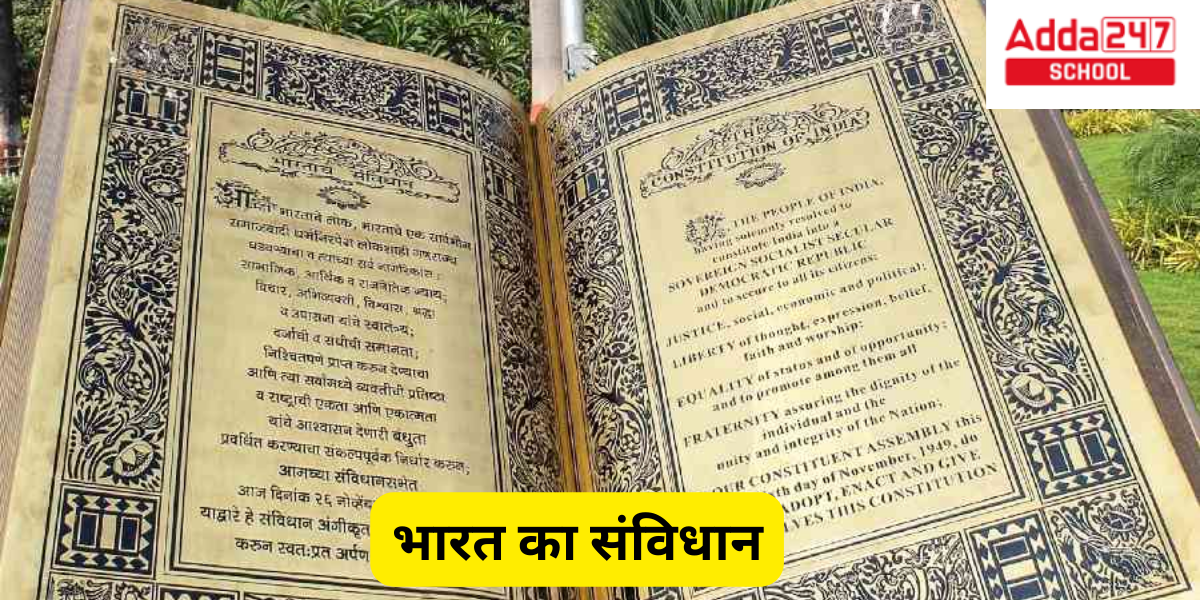 Adda247
SCHOOL
भारताचे संविधान
आम्ही भारताचे लोक, भारताचे एक सार्वभौम
समाजवादी धर्मनिरपेक्ष लोकशाही गणराज्य
घडवण्याचा व त्याच्या सर्व नागरिकांस :
सामाजिक, आर्थिक व राजनैतिक न्याय;
विचार, अभिव्यक्ती, विश्वास, श्रद्धा
व उपासना यांचे स्वातंत्र्य;
दर्जाची व संधीची समानता;
निश्चितपणे प्राप्त करुन देण्याचा
आणि त्या सर्वांमध्ये व्यक्तीची प्रतिष्ठा
व राष्ट्राची एकता आणि एकात्मता
यांचे आश्वासन देणारी बंधुता
प्रवर्धित करण्याचा संकल्पपूर्वक निर्धार करुन;
आमच्या संविधानसभेत
आज दिनांक २६ नोव्हें
याद्वारे हे संविधान अंगीकृत
करुन स्वतःप्रत अर्पण
THE
CONSTITUTION OF INDIA
WE, THE PEOPLE OF INDIA,
having solemnly resolved to
constitute India into a
SOVEREIGN SOCIALIST SECULAR
DEMOCRATIC REPUBLIC
and to secure to all its citizens:
JUSTICE, social, economic and political;
LIBERTY of thought, expression, belief,
faith and worship;
EQUALITY of status and of opportunity;
and to promote among them all
FRATERNITY assuring the dignity of the
individual and the
unity and integrity of the Nation;
OUR CONSTITUENT ASSEMBLY this
xth day of November, 1949, do
ADOPT, ENACT AND GIVE
LVES THIS CONSTITUTION
भारत का संविधान